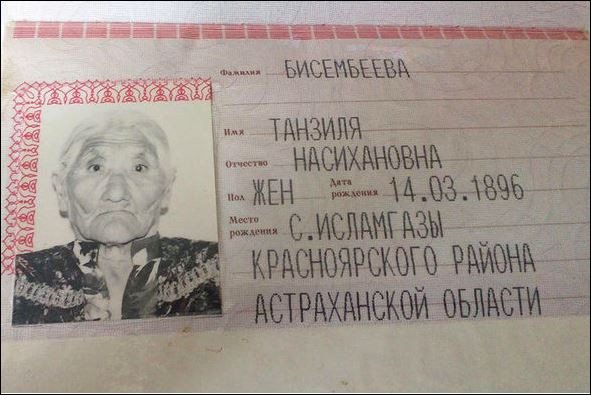 Фамилия БИСЕМБЕЕВА
Имя ТАНЗИЛЯ
Отчество НАСИХАНОВНА
Пол ЖЕН Дата рождения 14.03.1896
Место рождения С.ИСЛАМГАЗЫ
КРАСНОЯРСКОГО РАЙОНА
АСТРАХАНСКОЙ ОБЛАСТИ